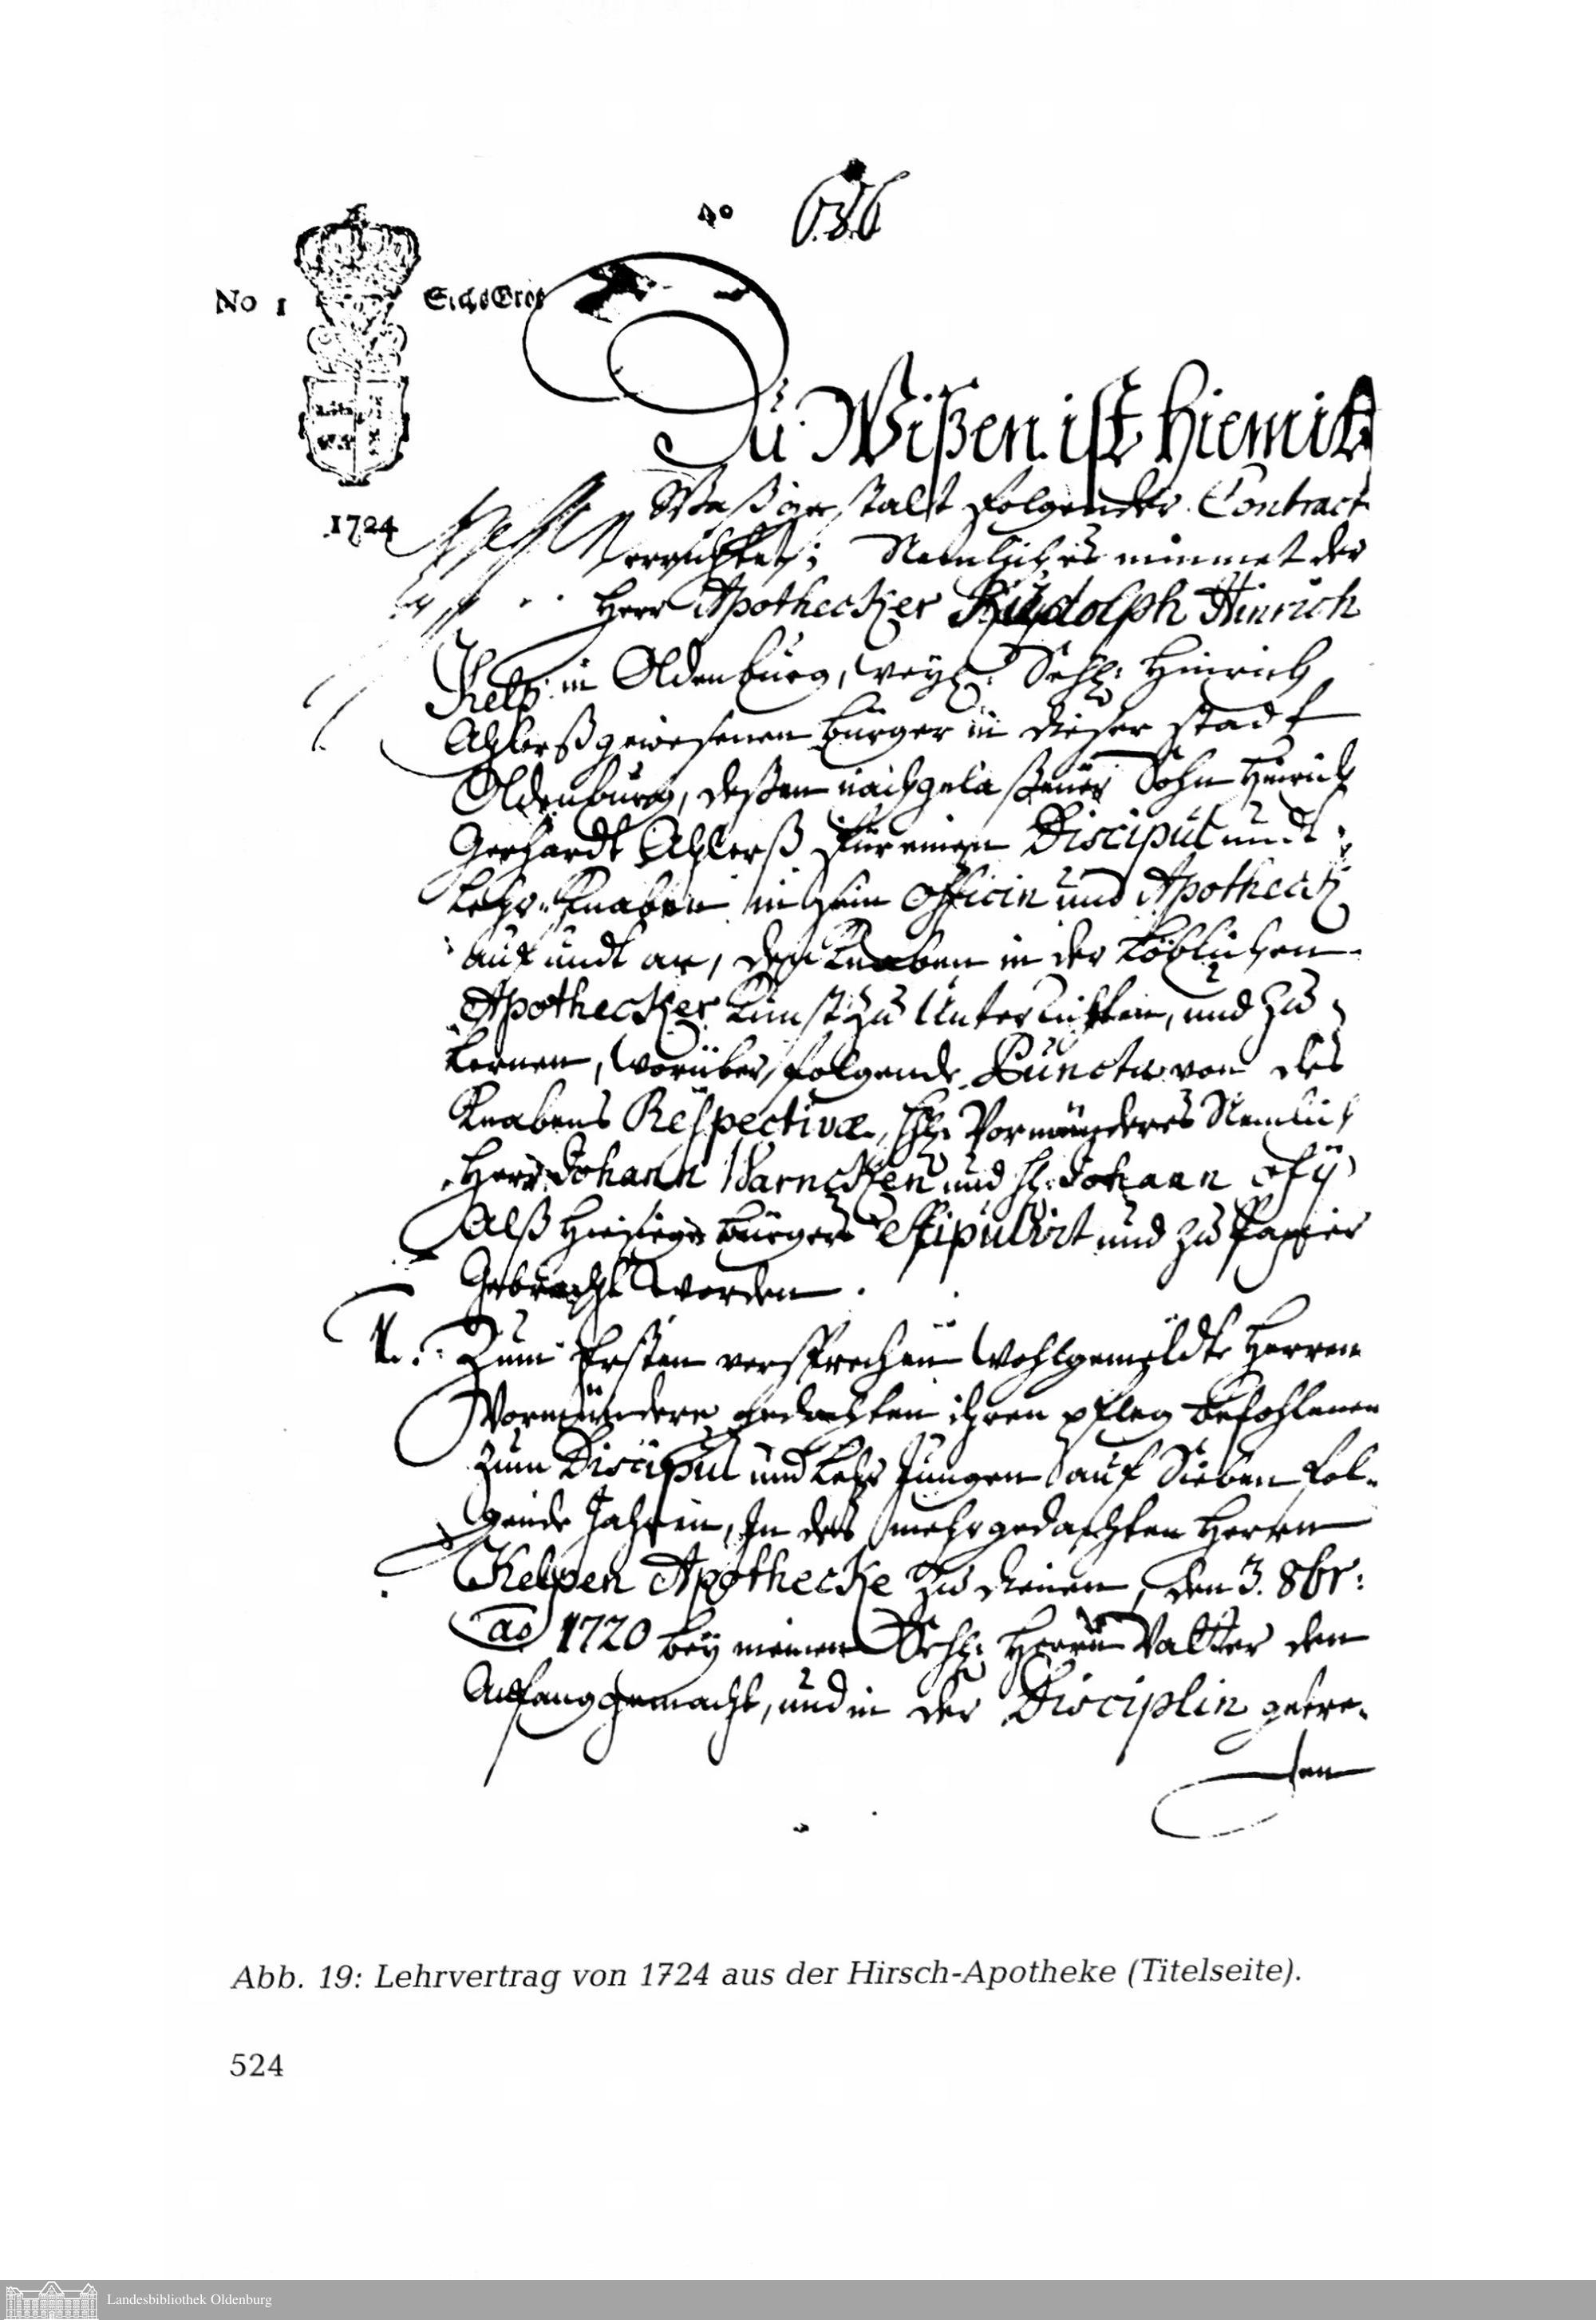 No 1
1724
Zu Wißen ist hiemit
Waßgestalt folgender Contract
errichtet; Nemlich es nimmet der
Herr Apothecker Rudolph Hinrich
Kelp in Oldenburg, weyl: Sehl: Hinrich
Ahlerß gewesenen bürger in dieser stadt
Oldenburg, deßen nachgelaßener Sohn Hinrich
Gerhardt Ahlerß für einen Discipul undt
Lehr-Knaben in sein Officin und Apotheck
auf undt an, den Knaben in der Löblichen
Apothecker Kunst zu Unterrichten, und zu
Lernen, worüber folgende Puncta von des
Knabens Respectivæ, Vormünderes Nemlich
Herr Johann Warncken und H: Johann
Alß hiesige bürgere Stipulirt und zu Papier
Gebracht worden.
1. Zum Ersten versprechen Wohlgemeldte Herren
Vormündere gedachten ihren pfleg befohlenen
zum Discipul und Lehr Jungen auf Sieben fol-
gende Jahren, In des mehrgedachten Herrn
Kelpen Apothecke zu dienen, den 3. 8br:
ao 1720 bey meinen Sehl: Herrn Vatter den
Anfang gemacht, und in der Disciplin getre-
ten
Abb. 19: Lehrvertrag von 1724 aus der Hirsch-Apotheke (Titelseite).
524
Landesbibliothek Oldenburg